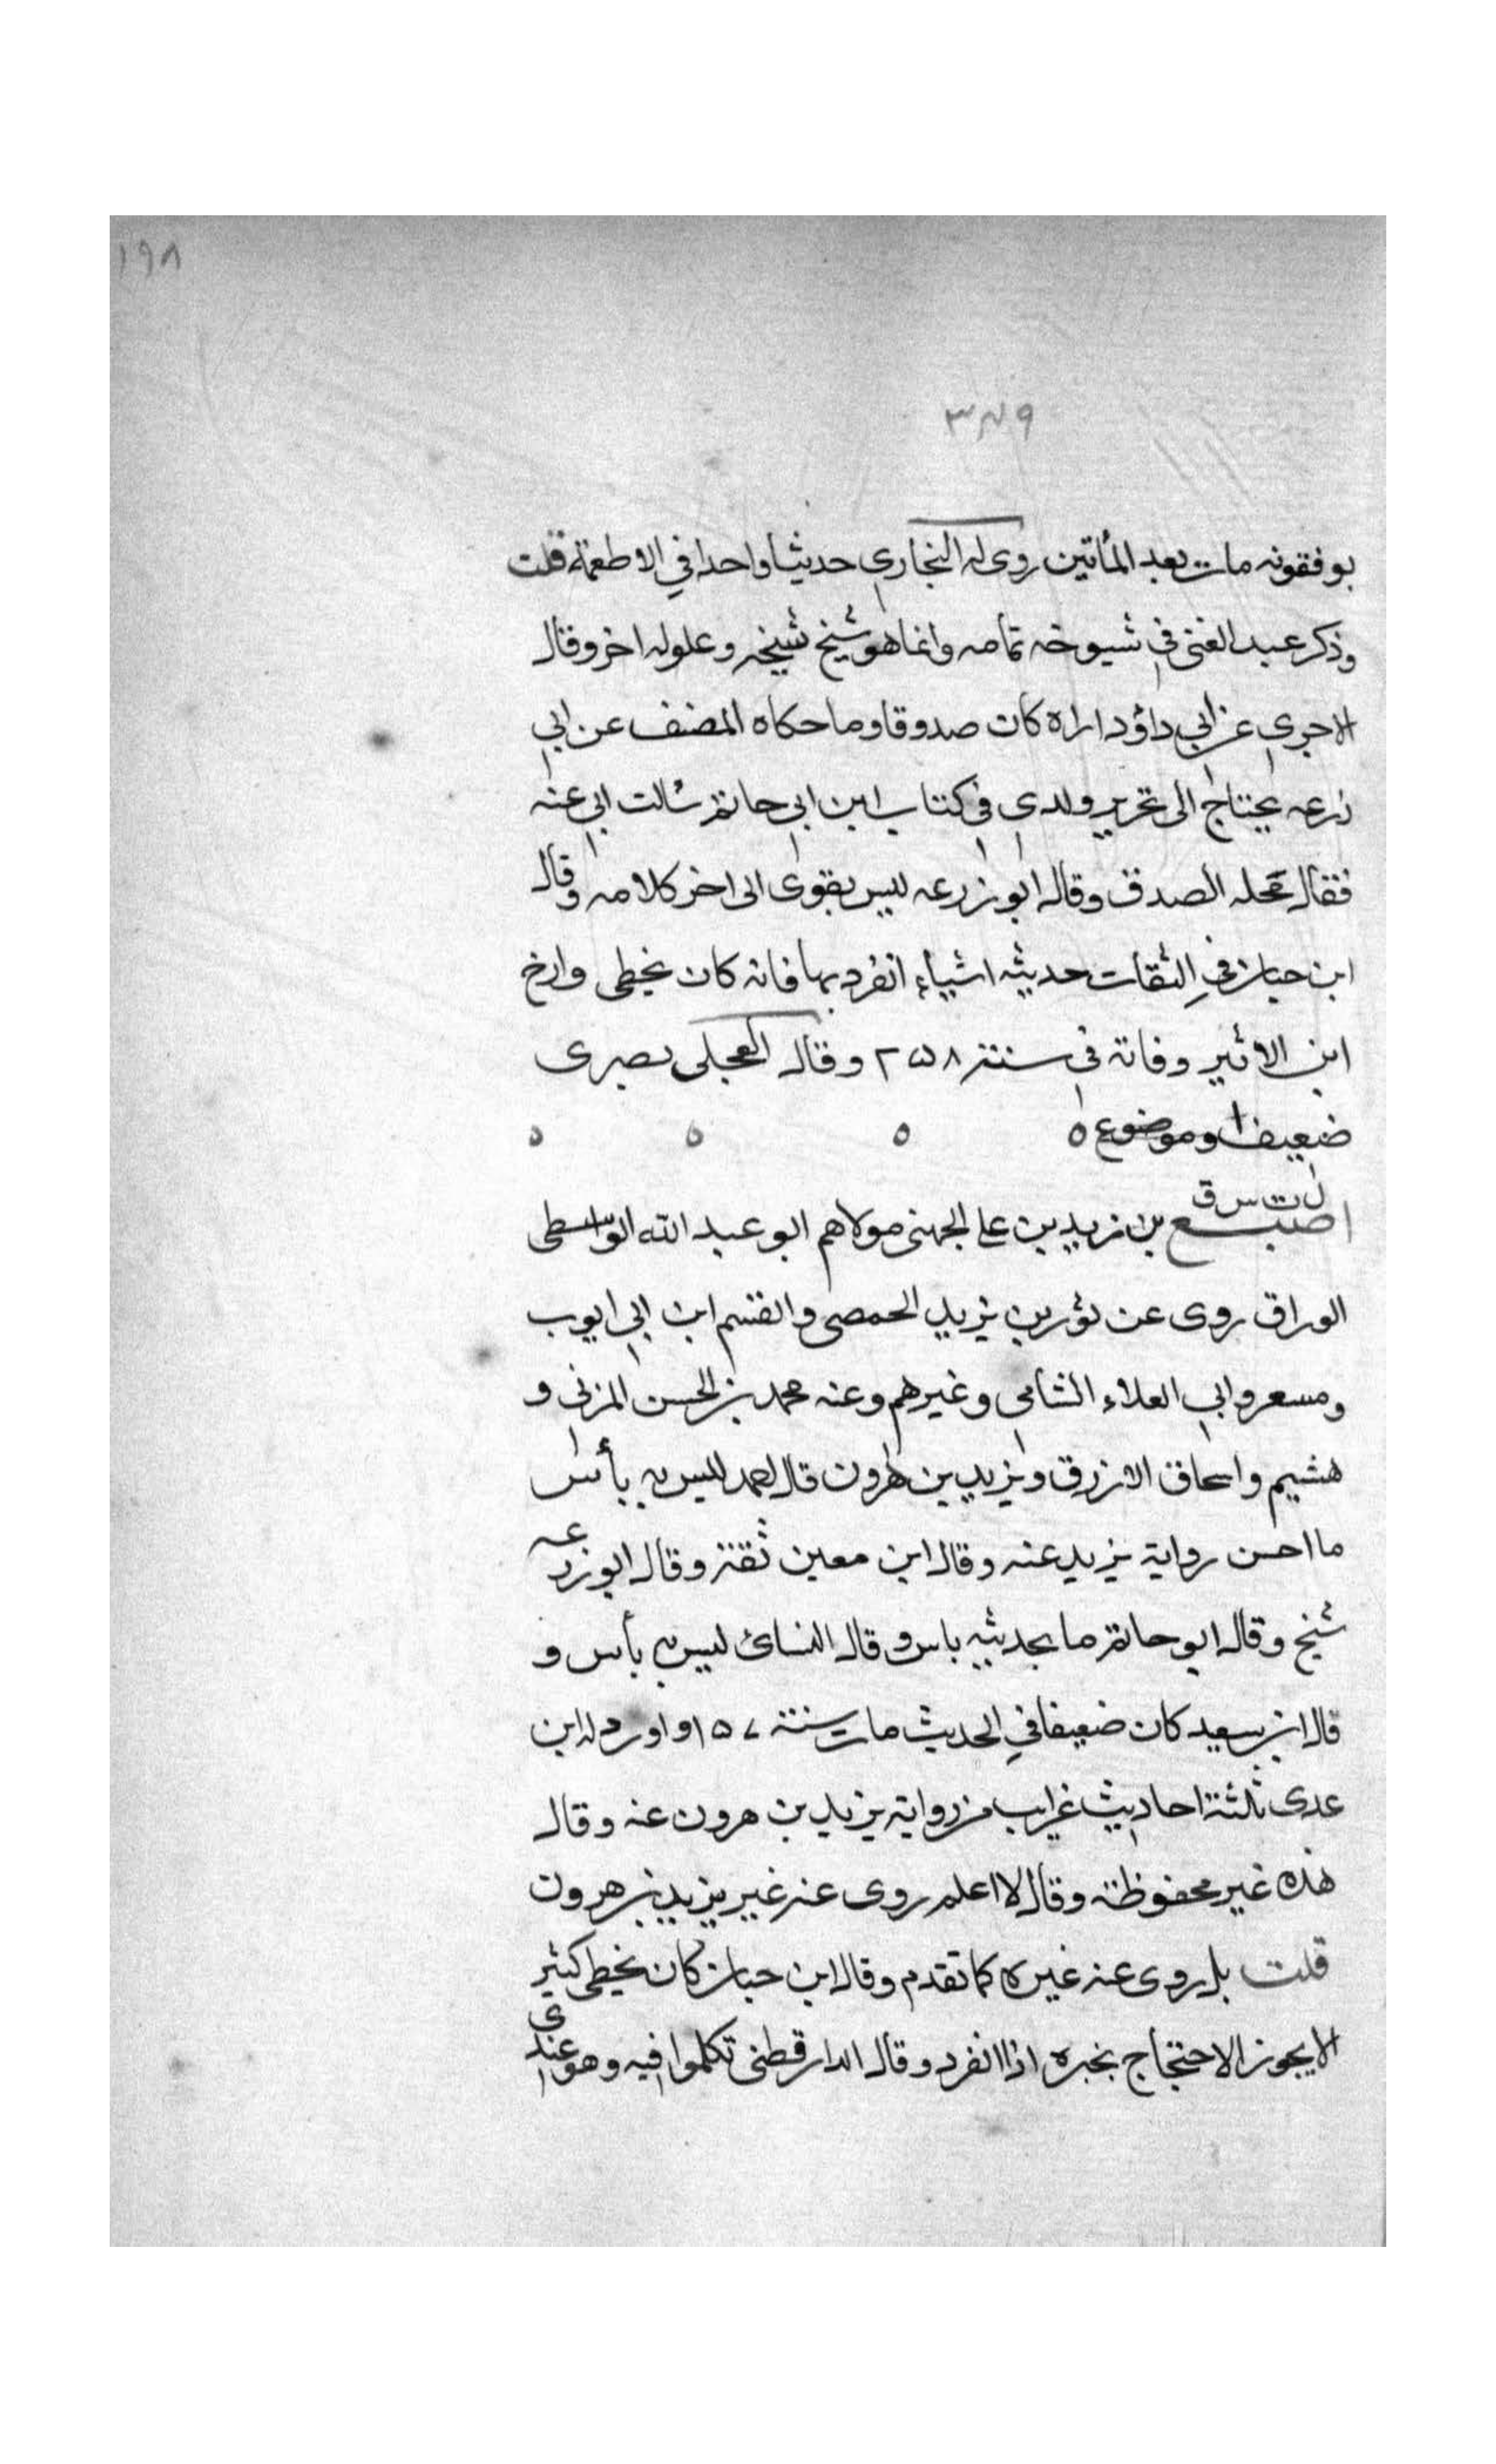 ١٩٨
٣٨٩
يوفقونه مات بعد المأتين روى له البخاري حديثا واحدا في الاطعمة قلت
وذكر عبد الغنى في شيوخه ثمامه وانما هو شيخ شيخه وعلوله اخر وقال
الاجري عن ابي داؤد اراه كان صدوقا وما حكاه المصنف عن ابي
زرعه يحتاج الى تحرير ولدى في كتاب ابن ابي حاتم سالت ابي عنه
فقال محله الصدق وقال ابو زرعه ليس بقوى الى اخر كلامه وقال
ابن حبان في الثقات حديثه اشياء انفرد بها فانه كان يخطى وارخ
ابن الاثير وفاته في سنة ٢٥٨ وقال العجلى بصرى
ضعيف وموضوع ٥ ٥ ٥ ٥
ل ت س ق
اصبغ بن زيد بن على الجهنى مولاهم ابو عبد الله الواسطى
الوراق روى عن ثور بن يزيد الحمصى والقسم ابن ابي ايوب
ومسعر وابي العلاء الشامى وغيرهم وعنه محمد بن الحسن المزنى و
هشيم واسحاق الازرق ويزيد بن هرون قال احمد ليس به بأس
ما احسن رواية يزيد عنه وقال ابن معين ثقة وقال ابو زرعه
شيخ وقال ابو حاتم ما بحديثه باس وقال النسائ ليس به بأس و
قال ابن سعيد كان ضعيفا في الحديث مات سنة ١٥٧ واورد له ابن
عدى ثلثة احاديث غرايب من رواية يزيد بن هرون عنه وقال
هذه غير محفوظة وقال لا اعلم روى عنه غير يزيد بن هرون
قلت بل روى عنه غيره كما تقدم وقال ابن حبان كان يخطى كثير
الا يجوز الاحتجاج بخبره اذا انفرد وقال الدار قطنى تكلموا فيه وهو عندى